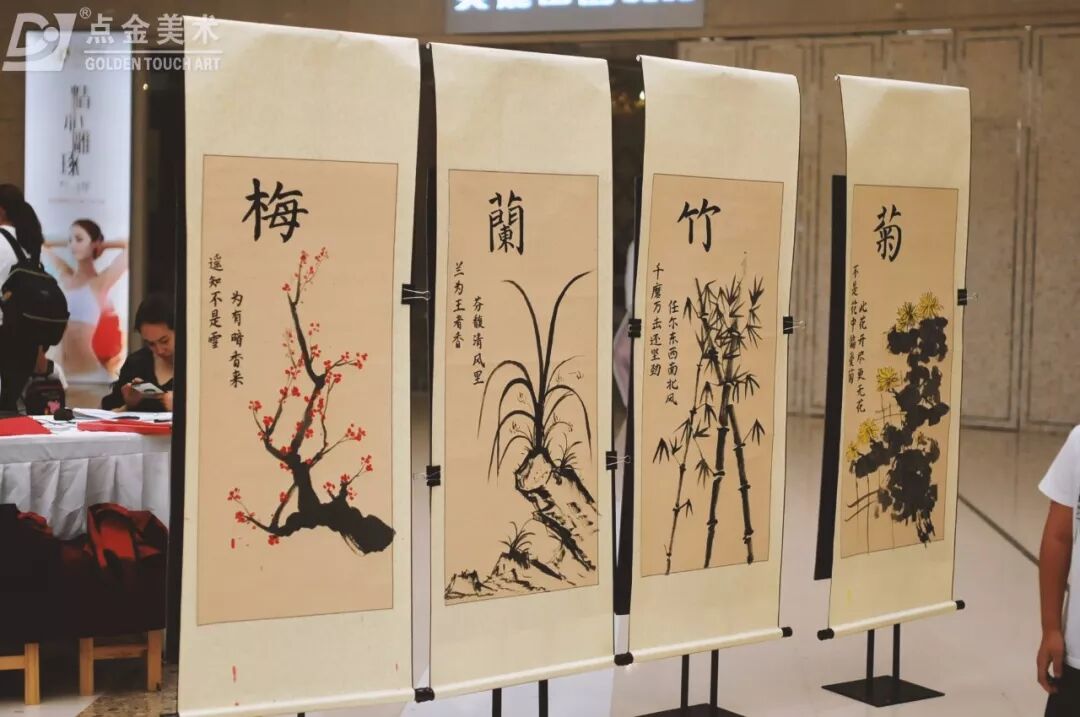 点金美术
GOLDEN TOUCH ART
精心雕琢
梅
遥知不是雪
为有暗香来
蘭
兰为王者香
芬馥清风里
竹
千磨万击还坚劲
任尔东西南北风
菊
不是花中偏爱菊
此花开尽更无花